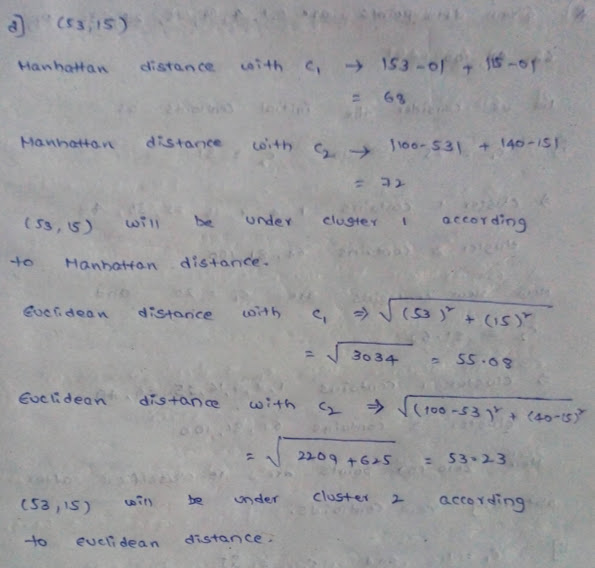 d] (53,15)
Manhattan distance with C₁ → |53-0| + |15-0|
= 68
Manhattan distance with C₂ → |100-53| + |40-15|
= 72
(53,15) will be under cluster 1 according
to Manhattan distance.
Euclidean distance with C₁ ⇒ √(53)² + (15)²
= √3034 = 55.08
Euclidean distance with C₂ ⇒ √(100-53)² + (40-15)²
= √2209 + 625 = 53.23
(53,15) will be under cluster 2 according
to euclidean distance.